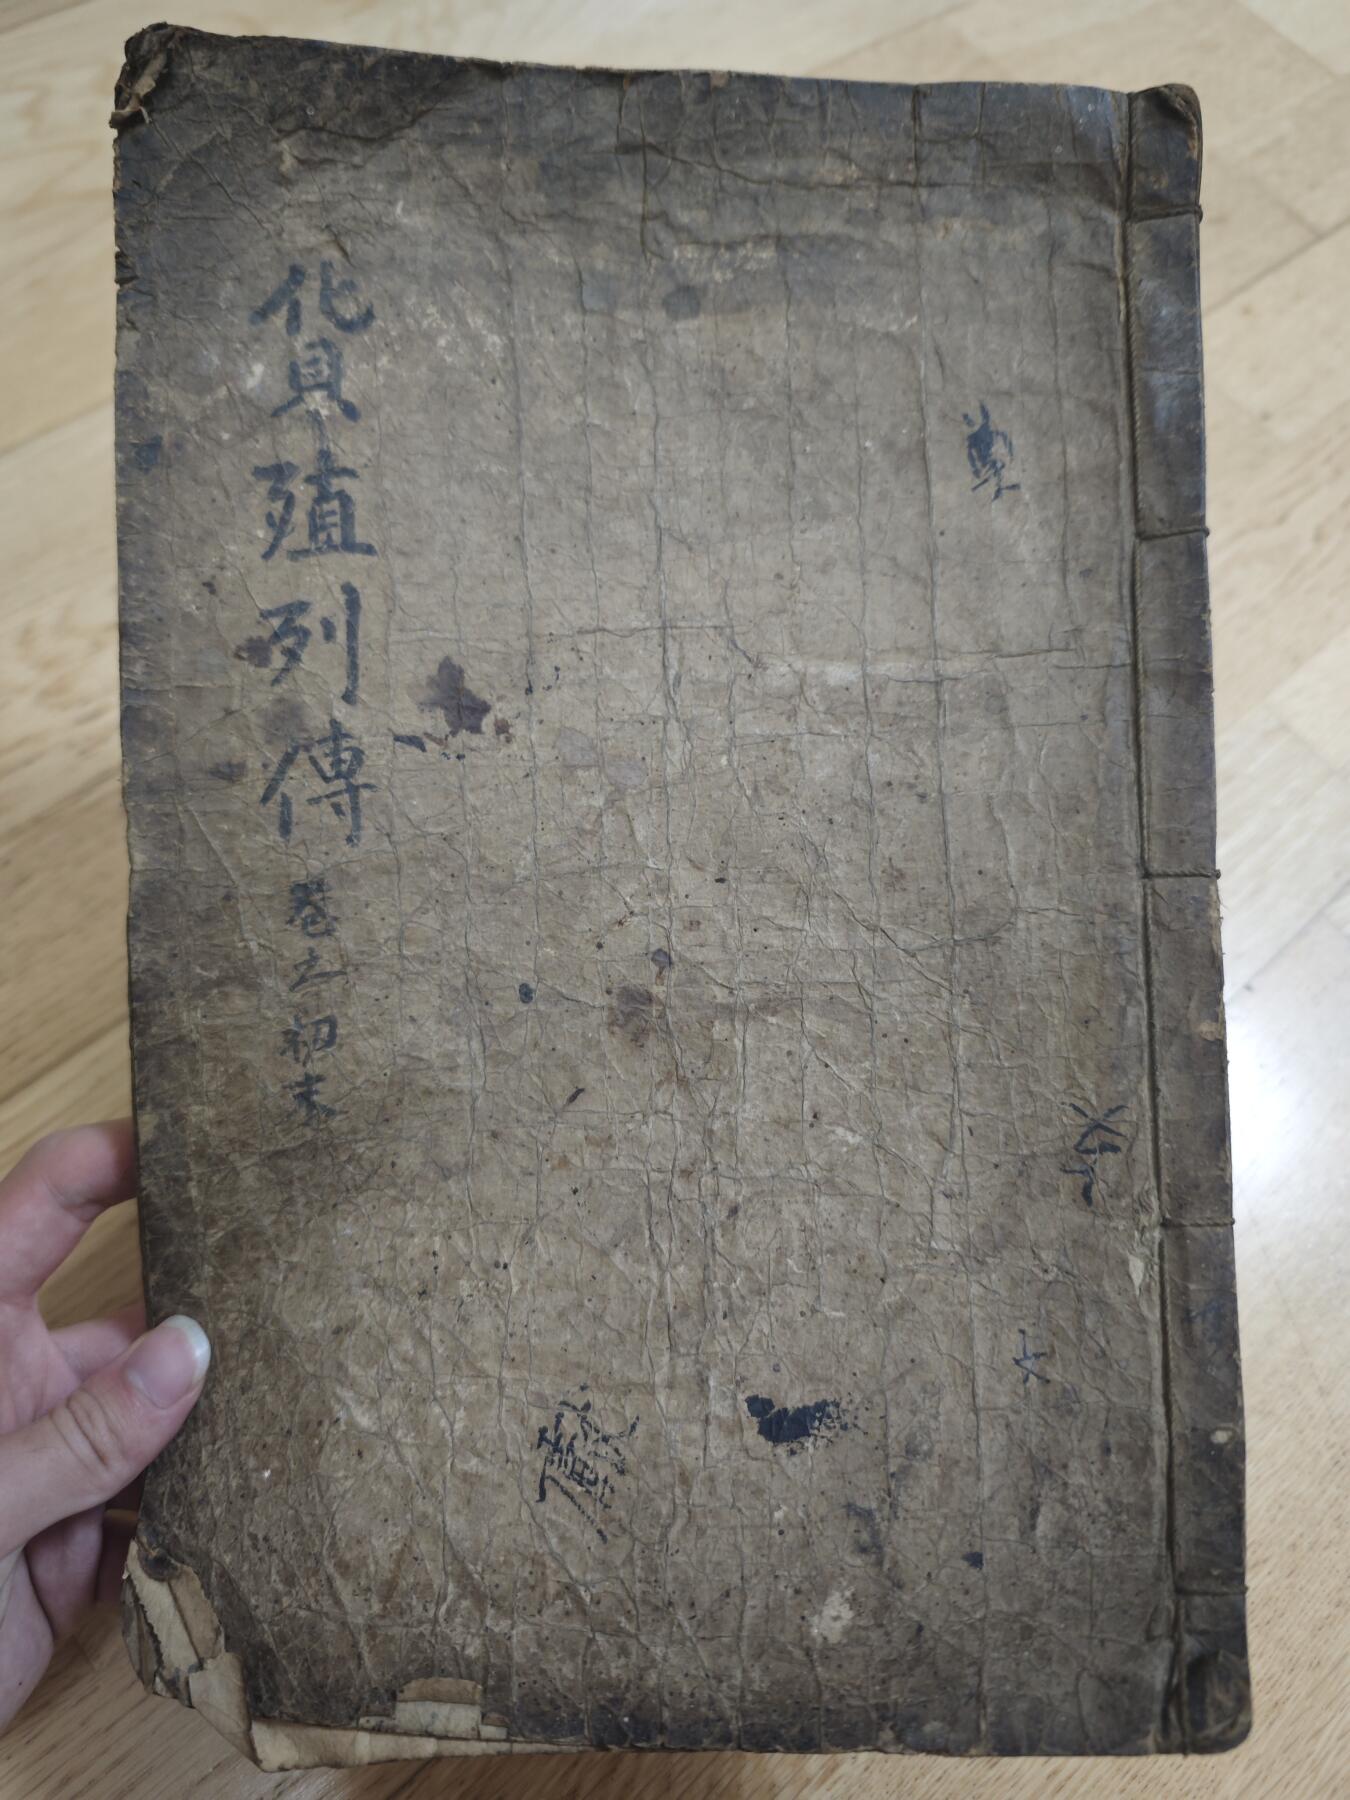 貨殖列傳 卷之初末